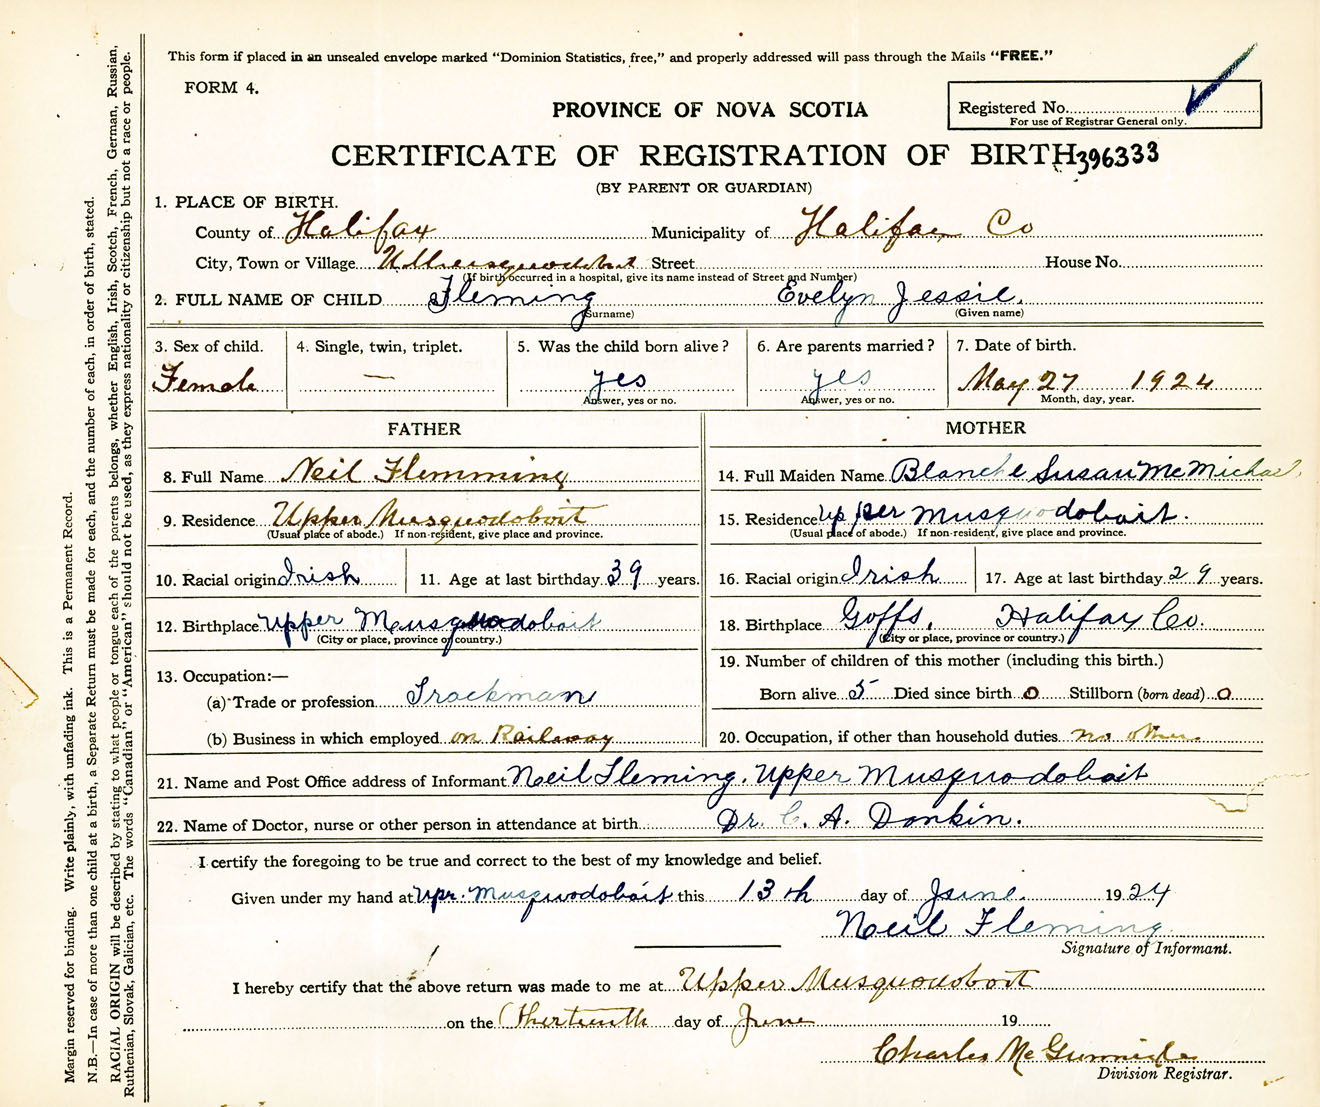 This form if placed in an unsealed envelope marked "Dominion Statistics, free," and properly addressed will pass through the Mails "FREE."
FORM 4.
PROVINCE OF NOVA SCOTIA
Registered No.
For use of Registrar General only.
CERTIFICATE OF REGISTRATION OF BIRTH 396333
(BY PARENT OR GUARDIAN)
1. PLACE OF BIRTH.
County of Halifax Municipality of Halifax Co
City, Town or Village Street House No.
(If birth occurred in a hospital, give its name instead of Street and Number)
2. FULL NAME OF CHILD Fleming Evelyn Jessie.
(Surname) (Given name)
3. Sex of child. 4. Single, twin, triplet. 5. Was the child born alive? 6. Are parents married? 7. Date of birth.
Female — yes yes May 27 1924
Answer, yes or no. Answer, yes or no. Month, day, year.
FATHER MOTHER
8. Full Name Neil Flemming 14. Full Maiden Name Blanche Susan McMichael
9. Residence Upper Musquodoboit 15. Residence Upper Musquodoboit.
(Usual place of abode.) If non-resident, give place and province. (Usual place of abode.) If non-resident, give place and province.
10. Racial origin Irish 11. Age at last birthday 39 years. 16. Racial origin Irish 17. Age at last birthday 29 years.
12. Birthplace Upper Musquodoboit 18. Birthplace Goffs, Halifax Co.
(City or place, province or country.) (City or place, province or country.)
13. Occupation:— 19. Number of children of this mother (including this birth.)
(a) Trade or profession Trackman Born alive 5 Died since birth 0 Stillborn (born dead) 0
(b) Business in which employed on Railway 20. Occupation, if other than household duties no other
21. Name and Post Office address of Informant Neil Fleming. Upper Musquodoboit
22. Name of Doctor, nurse or other person in attendance at birth Dr. C. A. Donkin.
I certify the foregoing to be true and correct to the best of my knowledge and belief.
Given under my hand at Upr. Musquodoboit this 13th day of June. 1924
Neil Fleming
Signature of Informant.
I hereby certify that the above return was made to me at Upper Musquodoboit
on the Thirteenth day of June 19
Charles McGunnigle
Division Registrar.
Margin reserved for binding. Write plainly, with unfading ink. This is a Permanent Record.
N.B.—In case of more than one child at a birth, a Separate Return must be made for each, and the number of each, in order of birth, stated.
RACIAL ORIGIN will be described by stating to what people or tongue each of the parents belongs, whether English, Irish, Scotch, French, German, Russian,
Ruthenian, Slovak, Galician, etc. The words "Canadian" or "American" should not be used, as they express nationality or citizenship but not a race or people.